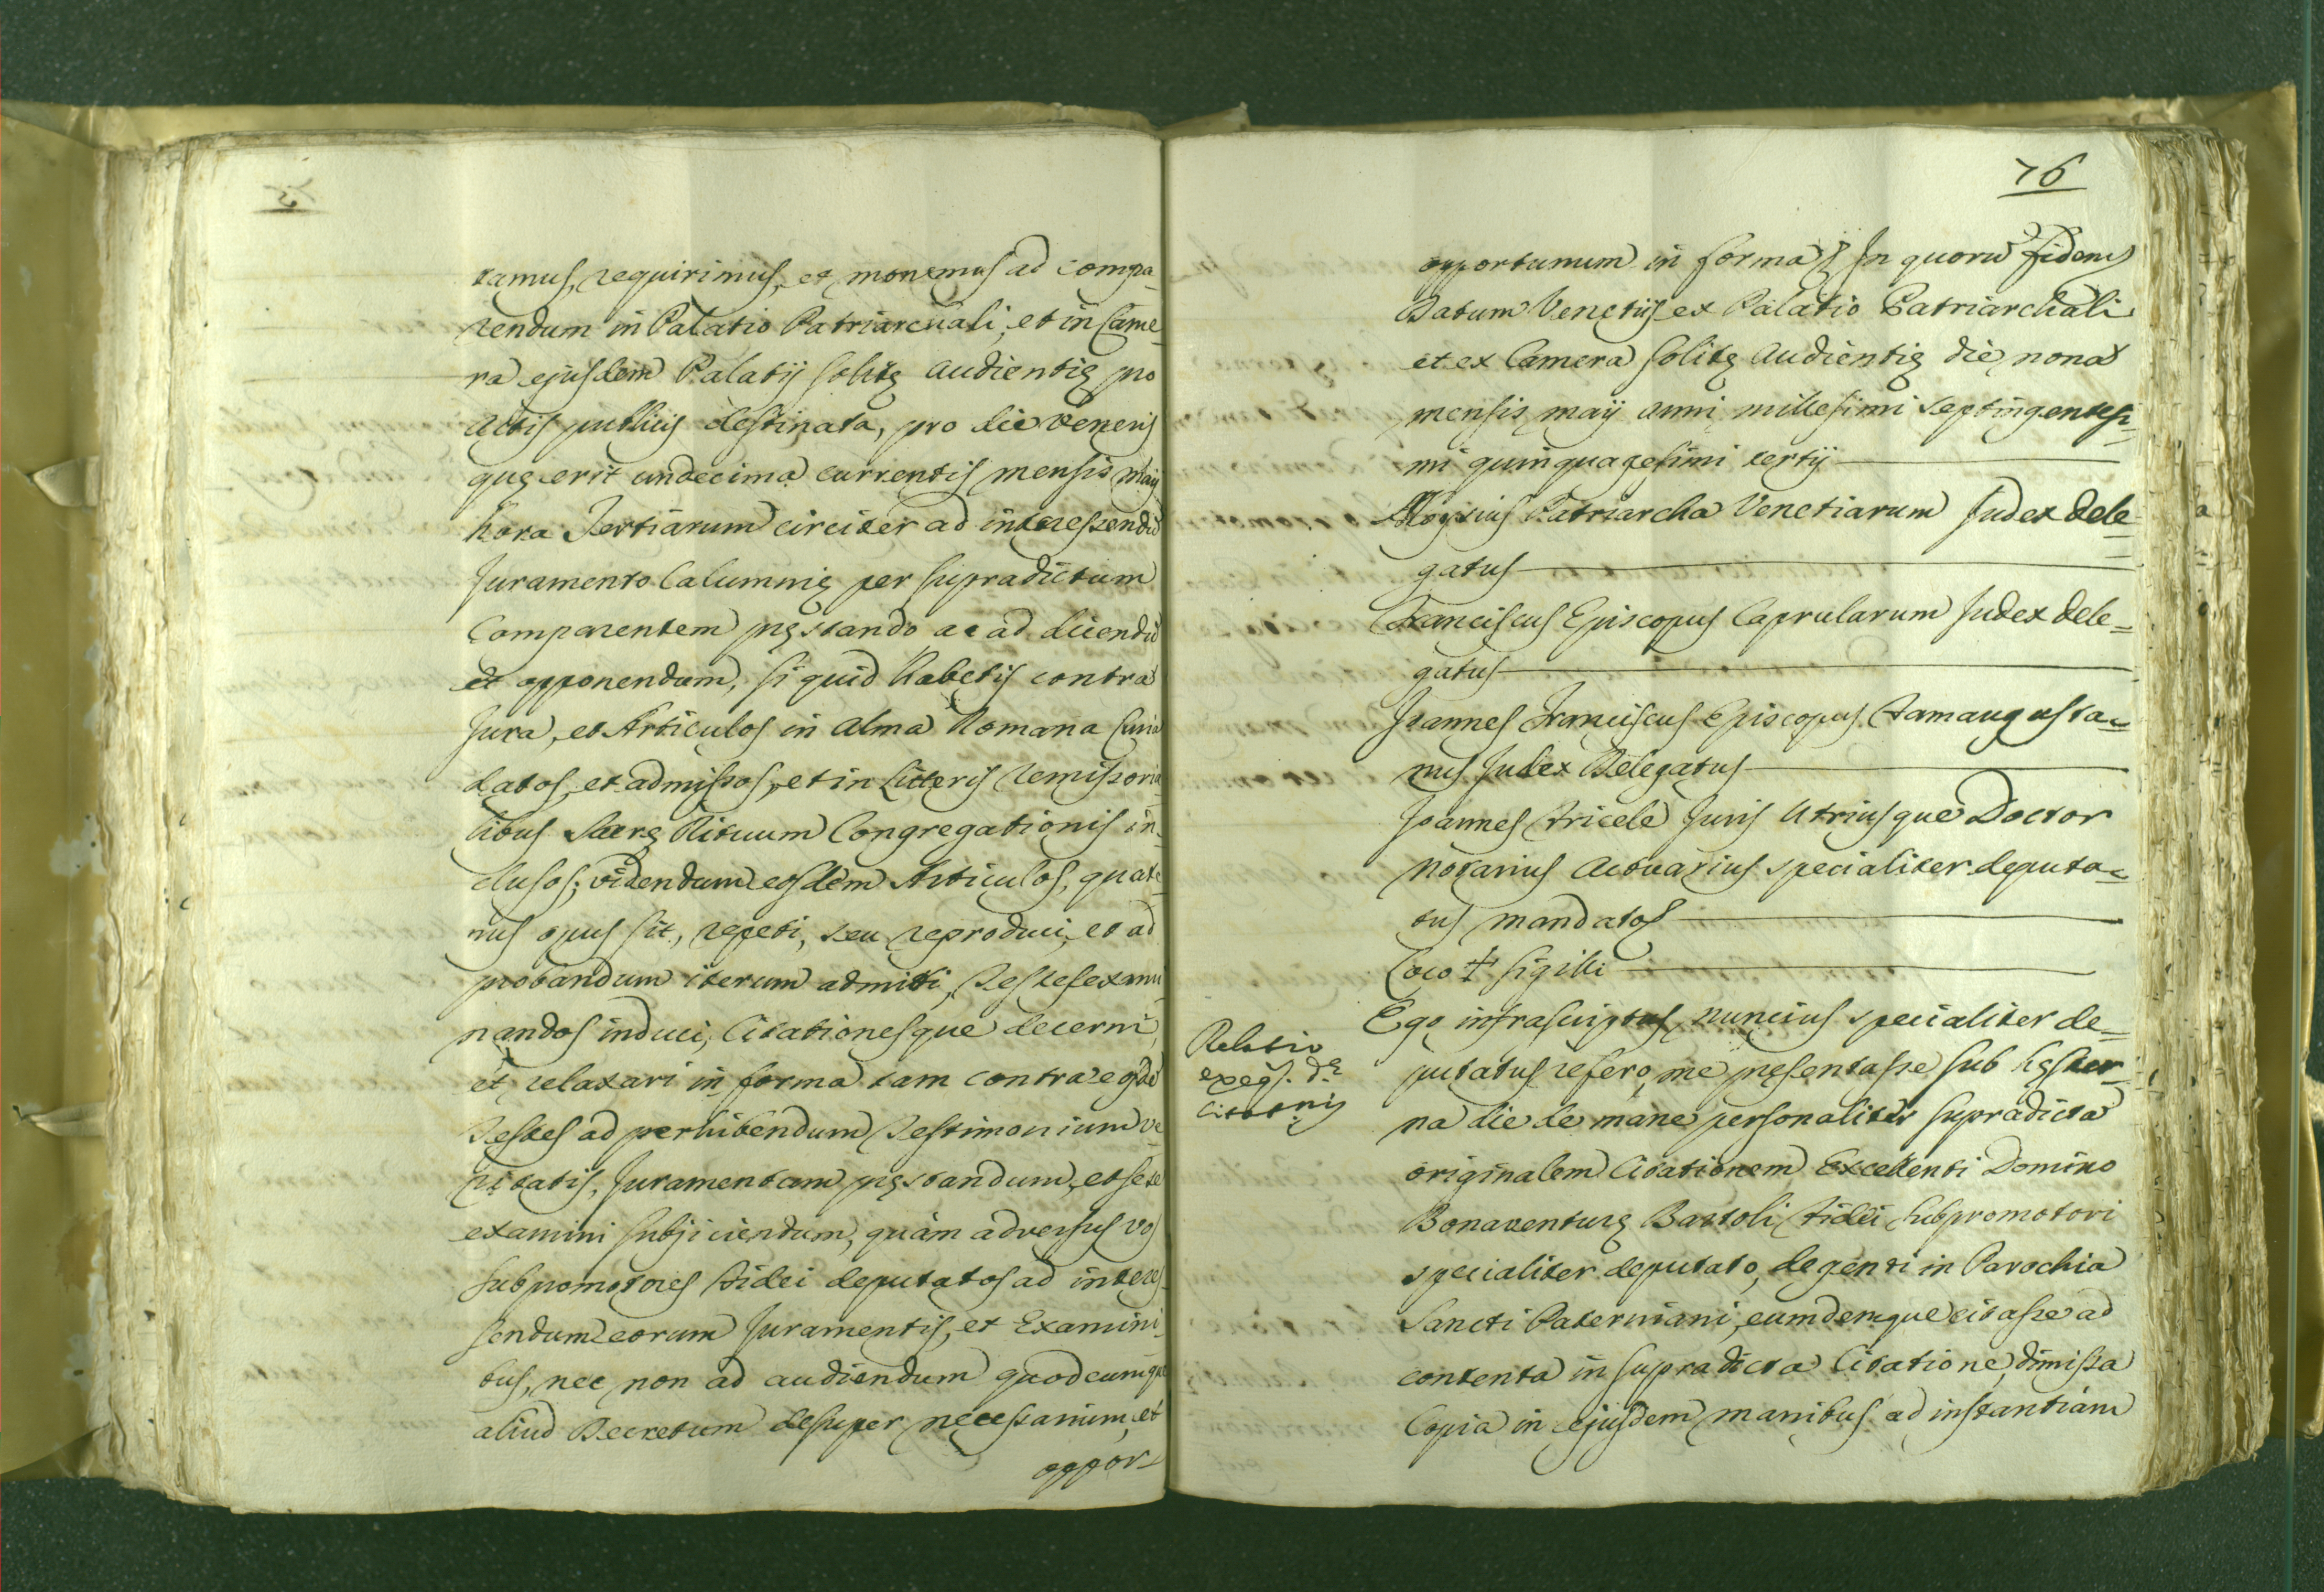 tamus, requirimus, et monemus ad compa-
rendum in Palatio Patriarchali, et in Came-
ra ejusdem Palatij solitę audientię pro
actis publicis destinata, pro die Veneris
quę erit undecima currentis mensis Maij
hora Tertiarum circiter ad interessendũ
Juramento Calumnię per supradictum
Comparentem pręstando ac ad dicendũ
et opponendum, si quid habetis contra
Jura, et Articulos in alma Romana Curia
datos, et admissos, et in Litteris remissoria-
libus Sacrę Rituum Congregationis in-
clusos; videndum eosdem Articulos, quate-
nus opus sit, repeti, seu reproduci, et ad
probandum iterum admitti, Testes exami-
nandos induci, Citationesque decerni,
et relaxari in forma tam contra eosdẽ
Testes ad perhibendum Testimonium ve-
ritatis, Juramentum pręstandum, et sese
examini subjiciendum, quàm adversus vos
subpromotores Fidei deputatos ad interes-
sendum eorum Juramentis, et Examini-
bus, nec non ad audiendum quodcumque
aliud Decretum desuper necessarium, et
oppor-
76
opportunum in forma In quorũ fidem
Datum Venetijs ex Palatio Patriarchali
et ex Camera solitę audientię die nona
mensis maij anni millesimi septingentesi-
mi quinquagesimi tertij
Aloysius Patriarcha Venetiarum Judex dele-
gatus
Franciscus Episcopus Caprularum Judex dele-
gatus
Joannes Franciscus Episcopus Famaugusta-
nus Judex Delegatus
Joannes Juris Utriusque Doctor
notarius Actuarius specialiter deputa-
tus mandatos
Loco + sigilli
Relatio
exeqs. dę
Citatnis
Ego infrascriptus nuncius specialiter de-
putatus refero, me pręsentasse sub hęster-
na die de mane personaliter supradicta
originalem Citationem Excellenti Domino
Bonaventurę Bartoli Fidei subpromotori
specialiter deputato, degenti in Parochia
Sancti Paterniani, eumdemque citasse ad
contenta in supradicta Citatione, dimissa
Copia in ejusdem manibus ad instantiam